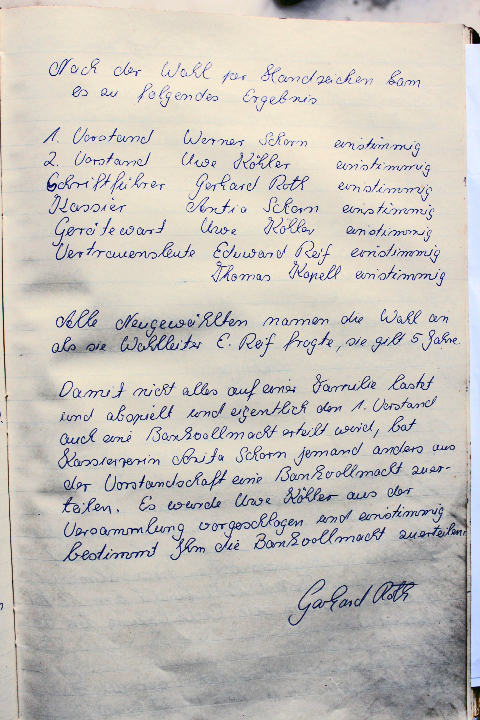 Nach der Wahl per Handzeichen kam
es zu folgendes Ergebnis
1. Vorstand Werner Schorn einstimmig
2. Vorstand Uwe Köhler einstimmig
Schriftführer Gerhard Roth einstimmig
Kassier Anita Schorn einstimmig
Gerätewart Uwe Köller einstimmig
Vertrauensleute Eduward Reif einstimmig
Thomas Kapell einstimmig
Alle Neugewählten namen die Wahl an
als sie Wahlleiter E. Reif fragte, sie gilt 5 Jahre.
Damit nicht alles auf einer Familie lastet
und abspielt und eigentlich den 1. Vorstand
auch eine Bankvollmacht erteilt wird, bat
Kassiererin Anita Schorn jemand anders aus
der Vorstandschaft eine Bankvollmacht zuer-
teilen. Es wurde Uwe Köller aus der
Versammlung vorgeschlagen und einstimmig
bestimmt Ihm die Bankvollmacht zuerteilen
Gerhard Roth